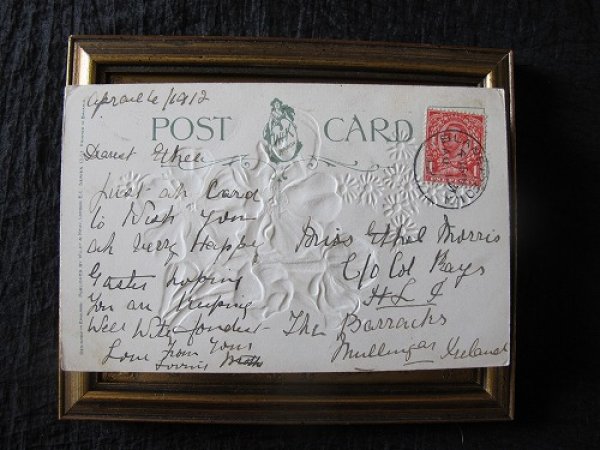 April 6/1912
POST CARD
Dearest Ethel
Just ah Card
to Wish you
ah very Happy
Easter hoping
you are keeping
Well With fondest
Love from your
Loving
Miss Ethel Morris
C/o Col Bays
H L I
The Barracks
Mullingar Ireland
1 1